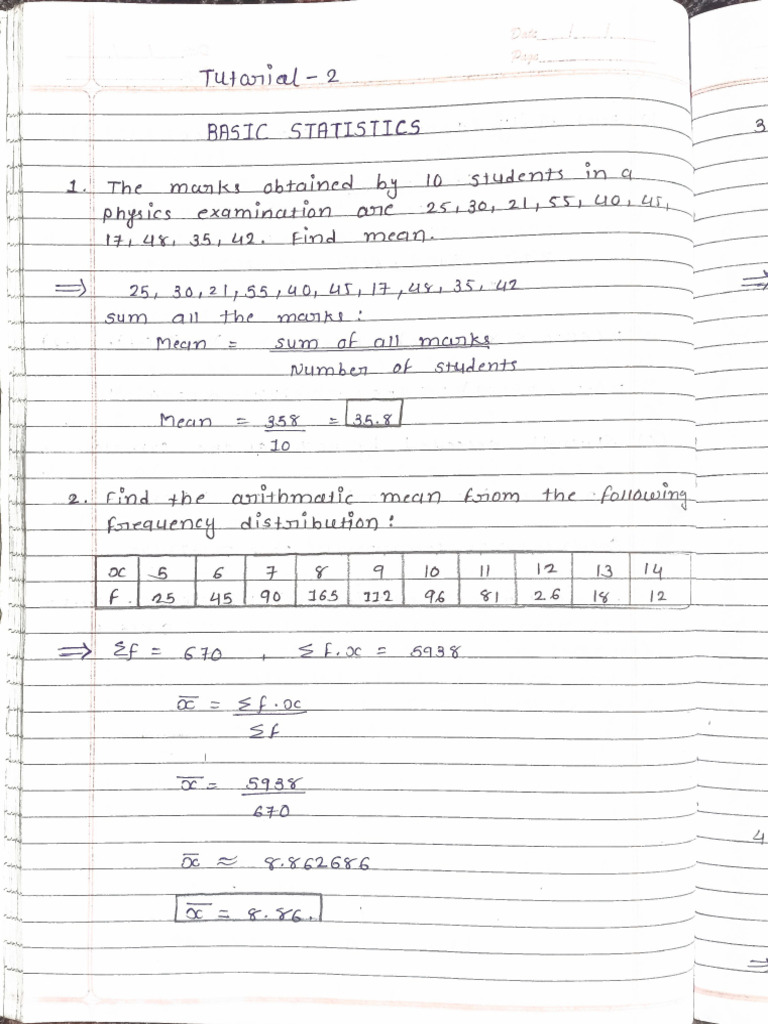 Date / /
Page
Tutorial-2
BASIC STATISTICS
1. The marks obtained by 10 students in a
physics examination are 25, 30, 21, 55, 40, 45,
17, 48, 35, 42. Find mean.
⇒ 25, 30, 21, 55, 40, 45, 17, 48, 35, 42
sum all the marks:
Mean = sum of all marks
Number of students
Mean = 358 = 35.8
10
2. Find the arithmatic mean from the following
frequency distribution:
x 5 6 7 8 9 10 11 12 13 14
f. 25 45 90 165 112 96 81 26 18 12
⇒ Σf = 670, Σf.x = 5938
x̄ = Σf.x
Σf
x̄ = 5938
670
x̄ ≈ 8.862686
x̄ = 8.86.
3
⇒
4
⇒